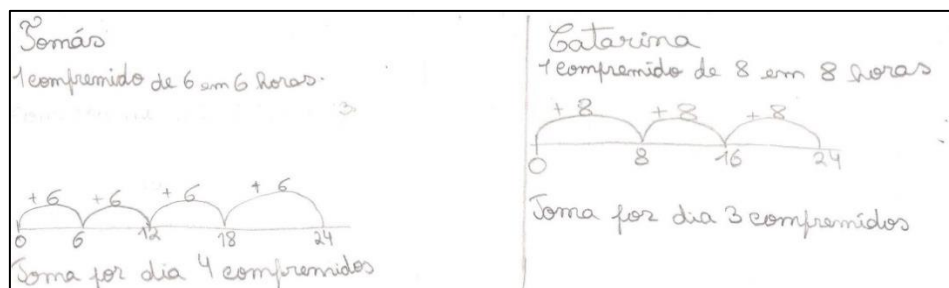 Tomás
1 compremido de 6 em 6 horas.
+6 +6 +6 +6
0 6 12 18 24
Toma por dia 4 compremidos
Catarina
1 compremido de 8 em 8 horas
+8 +8 +8
0 8 16 24
Toma por dia 3 compremidos